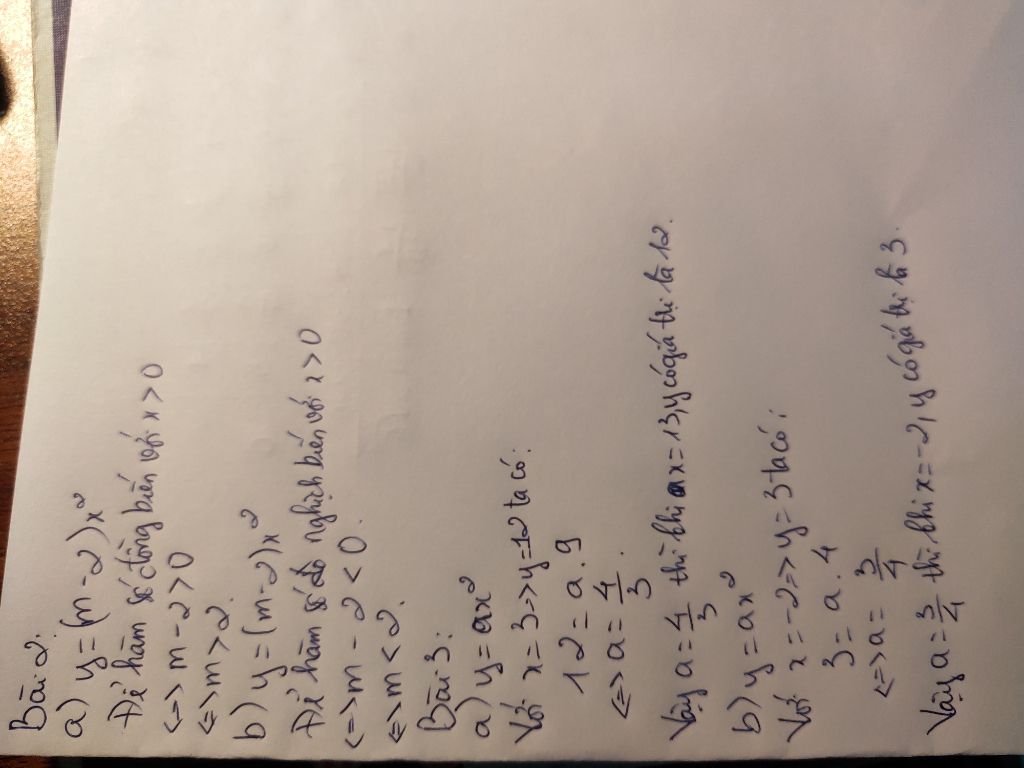 Bài 2:
a) y = (m - 2)x²
Để hàm số đồng biến với x > 0
<=> m - 2 > 0
<=> m > 2.
b) y = (m - 2)x²
Để hàm số nghịch biến với x > 0
<=> m - 2 < 0.
<=> m < 2.
Bài 3:
a) y = ax²
Với x = 3 => y = 12 ta có:
12 = a . 9
<=> a = 4/3.
Vậy a = 4/3 thì khi x = 3, y có giá thì là 12.
b) y = ax²
Với x = -2 => y = 3 ta có:
3 = a . 4
<=> a = 3/4
Vậy a = 3/4 thì khi x = -2, y có giá thị là 3.